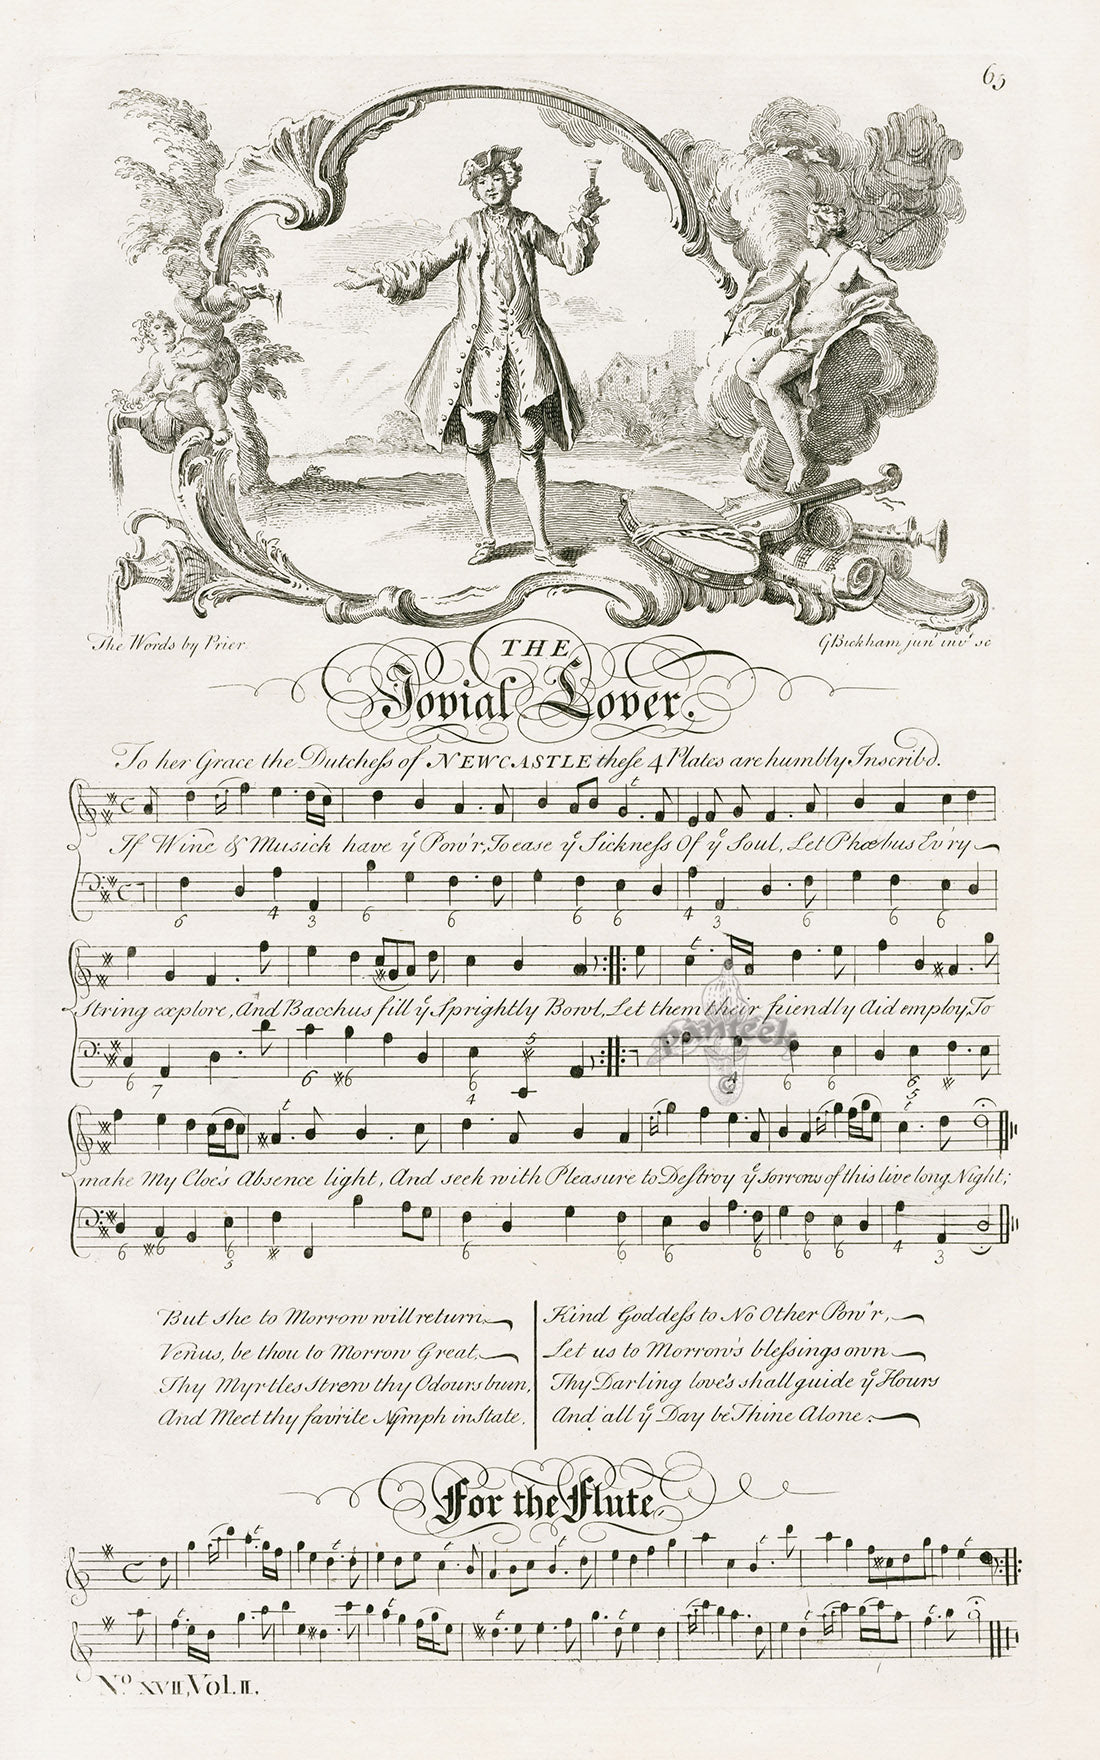 65
The Words by Prier
G Bickham junr invt sc
THE
Jovial Lover.
To her Grace the Dutchess of NEWCASTLE these 4 Plates are humbly Inscrib'd.
If Wine & Musick have ye Pow'r, To ease ye Sickness Of ye Soul, Let Phœbus Ev'ry
6 4 3 6 6 6 6 4 3 6 6 6
String explore, And Bacchus fill ye Sprightly Bowl, Let them their friendly Aid employ, To
6 7 6 6 6 4 5 4 6 6 6 5
make My Cloe's Absence light, And seek with Pleasure to Destroy ye sorrows of this live long Night;
6 6 6 5 6 6 6 6 6 6 4 3
But she to Morrow will return
Venus, be thou to Morrow Great,
Thy Myrtles Strew thy Odours burn,
And Meet thy fav'rite Nymph in State.
Kind Goddess to No Other Pow'r,
Let us to Morrow's blessings own
Thy Darling love's shall guide ye Hours
And all ye Day be Thine Alone.
For the Flute.
No XVII, Vol. II.
panteek
©